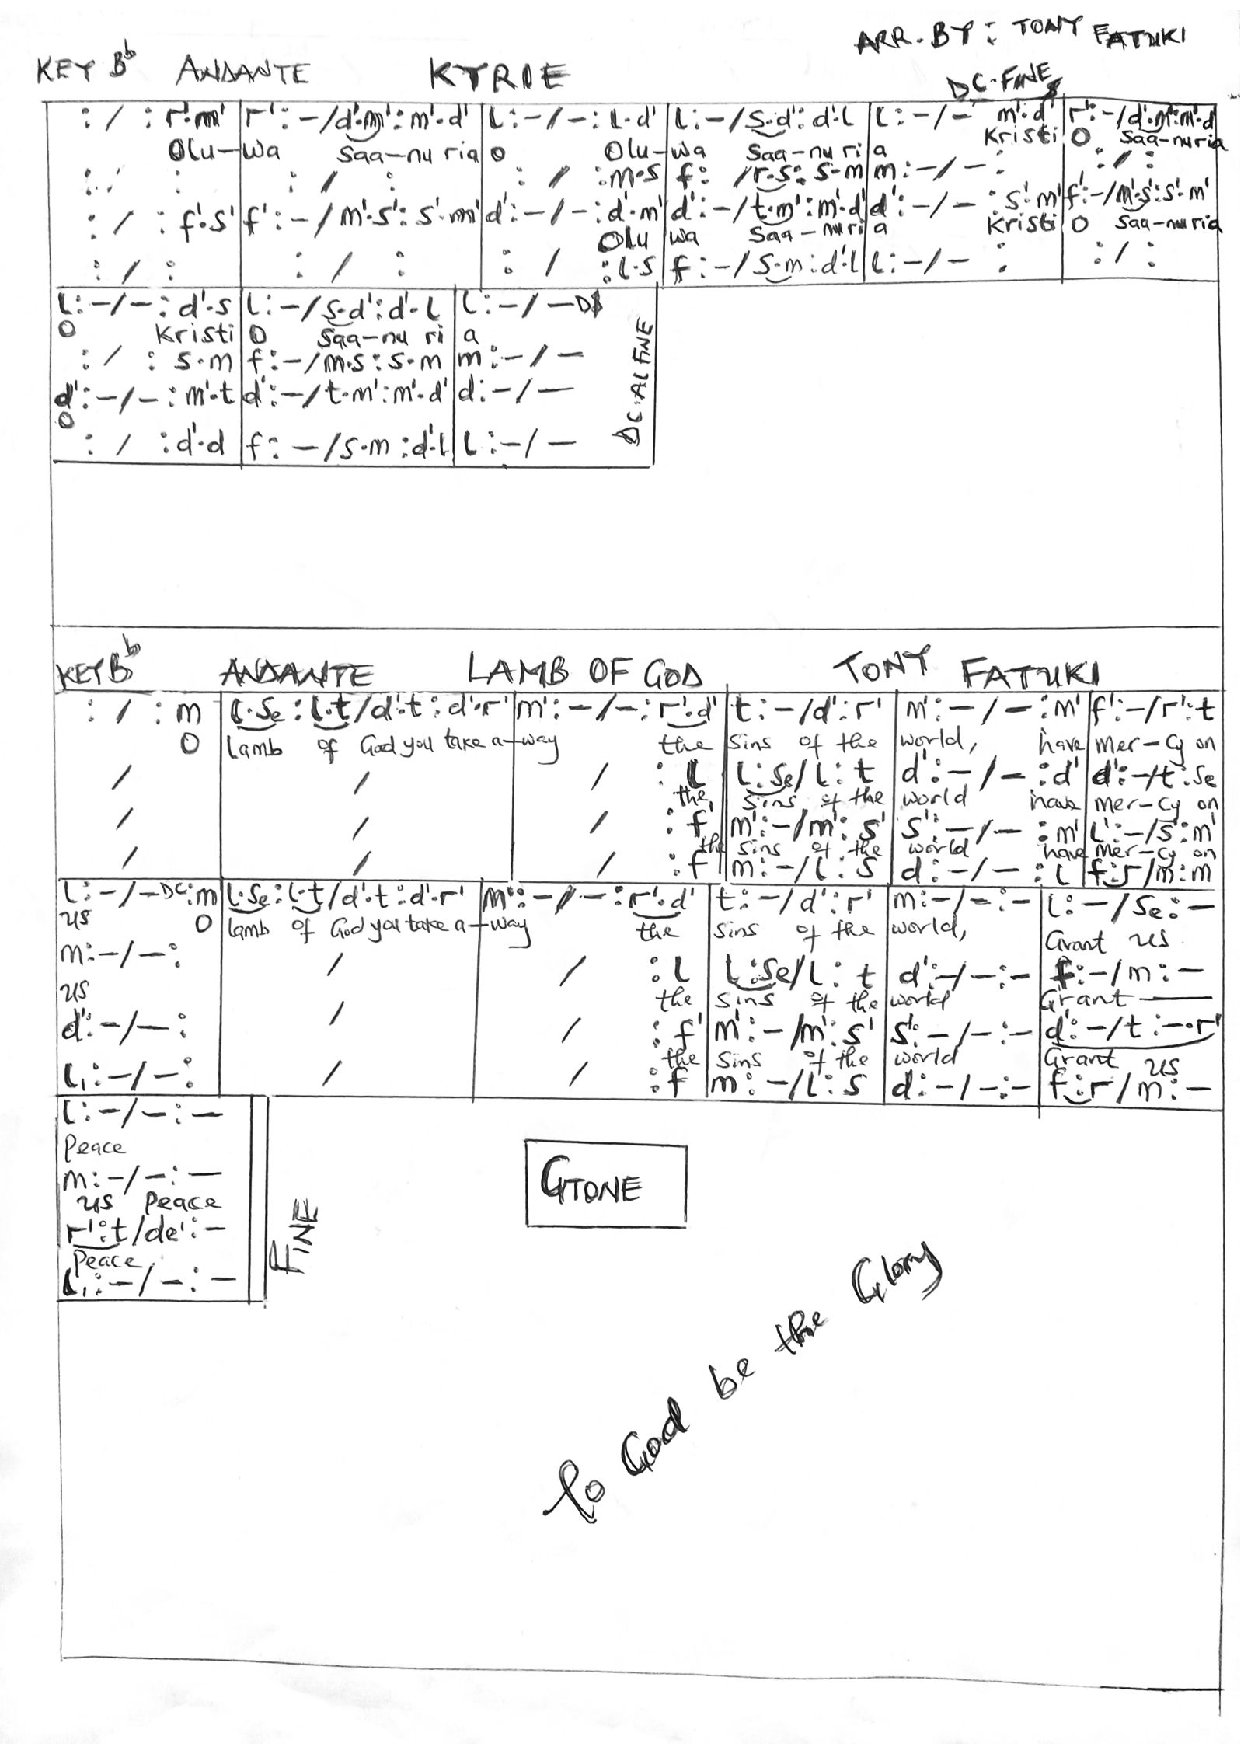 ARR. BY: TONY FATUKI
KEY Bb ANDANTE KYRIE
DC. FINE
: / : r'.m' | r' : – / d'.m' : m'.d' | l : – / – : l.d' | l : – / s.d' : d'.l | l : – / – m'.d' | r' : – / d'.m' : m'.d
Olu – wa Saa – nu ria o Olu – wa Saa – nu ri a Kristi O Saa – nu ria
: / : | : / : | : / : m.s | f : / r.s : s.m | m : – / – : | : / :
: / : f'.s' | f' : – / m'.s' : s'.m' | d' : – / – : d'.m' | d' : – / t.m' : m'.d' | d' : – / – : s'.m' | f' : – / m'.s' : s'.m'
Olu wa Saa – nu ri a Kristi O Saa – nu ria
: / : | : / : | : / : l.s | f : – / s.m : d'.l | l : – / – : | : / :
l : – / – : d'.s | l : – / s.d' : d'.l | l : – / – D$
O Kristi O Saa – nu ri a
: / : s.m | f : – / m.s : s.m | m : – / –
d' : – / – : m'.t | d' : – / t.m' : m'.d' | d : – / –
O
: / : d'.d | f : – / s.m : d'.l | l : – / –
DC. AL FINE
KEY Bb ANDANTE LAMB OF GOD TONY FATUKI
: / : m | l.se : l.t / d'.t : d'.r' | m' : – / – : r'.d' | t : – / d' : r' | m' : – / – : m' | f' : – / r' : t
O lamb of God you take a – way the sins of the world, have mer – cy on
/ | / | / : l | l : se / l : t | d' : – / – : d' | d' : – / t : se
the sins of the world have mer – cy on
/ | / | / : f' | m' : – / m' : s' | s' : – / – : m' | l' : – / s' : m'
the sins of the world have mer – cy on
/ | / | / : f | m : – / l : s | d : – / – : l | f : r / m : m
l : – / – DC : m | l.se : l.t / d'.t : d'.r' | m' : – / – : r'.d' | t : – / d' : r' | m : – / – : – | l : – / se : –
us O lamb of God you take a – way the sins of the world, Grant us
m : – / – : | / | / : l | l : se / l : t | d' : – / – : – | f : – / m : –
us the sins of the world Grant –
d' : – / – : | / | / : f' | m' : – / m' : s' | s' : – / – : – | d' : – / t : – . r'
the sins of the world Grant us
l, : – / – : | / | / : f | m : – / l : s | d : – / – : – | f : r / m : –
l : – / – : –
Peace
m : – / – : –
us Peace
r' : t / de' : –
Peace
l, : – / – : –
FINE
GTONE
To God be the Glory